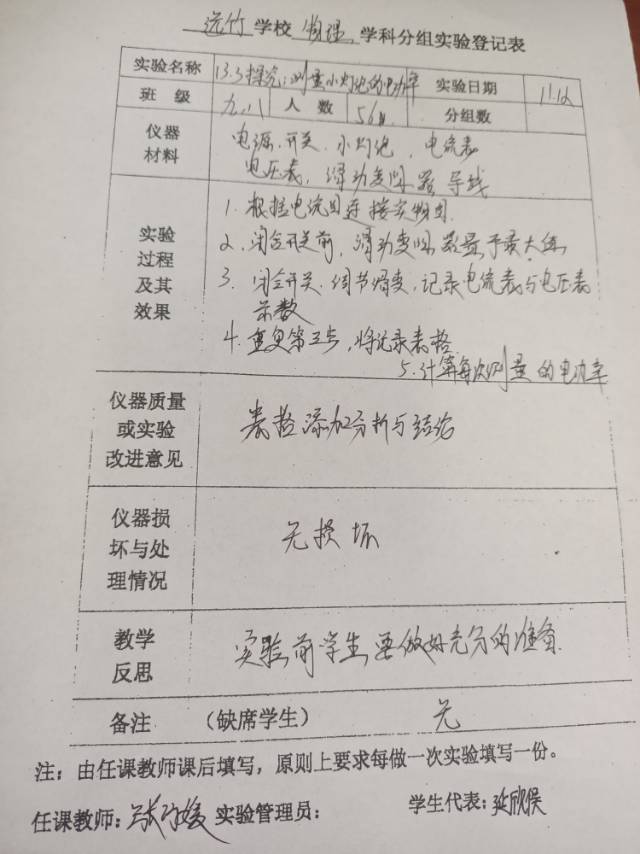 远竹学校 物理 学科分组实验登记表
实验名称 13.3探究:测量小灯泡的电功率 实验日期 11.12
班 级 九.八 人 数 56人 分组数
仪器材料 电源.开关.小灯泡,电流表
电压表,滑动变阻器 导线
实验过程及其效果 1.根据电流图连接实物图.
2.闭合开关前,滑动变阻器置于最大值
3.闭合开关.调节滑变,记录电流表与电压表
示数
4.重复第三步,将记录表格
5.计算每次测量的电功率
仪器质量或实验改进意见 表格添加分析与结论
仪器损坏与处理情况 无损坏
教学反思 实验前学生要做好充分的准备.
备注 (缺席学生) 无
注:由任课教师课后填写,原则上要求每做一次实验填写一份。
任课教师: 实验管理员: 学生代表: